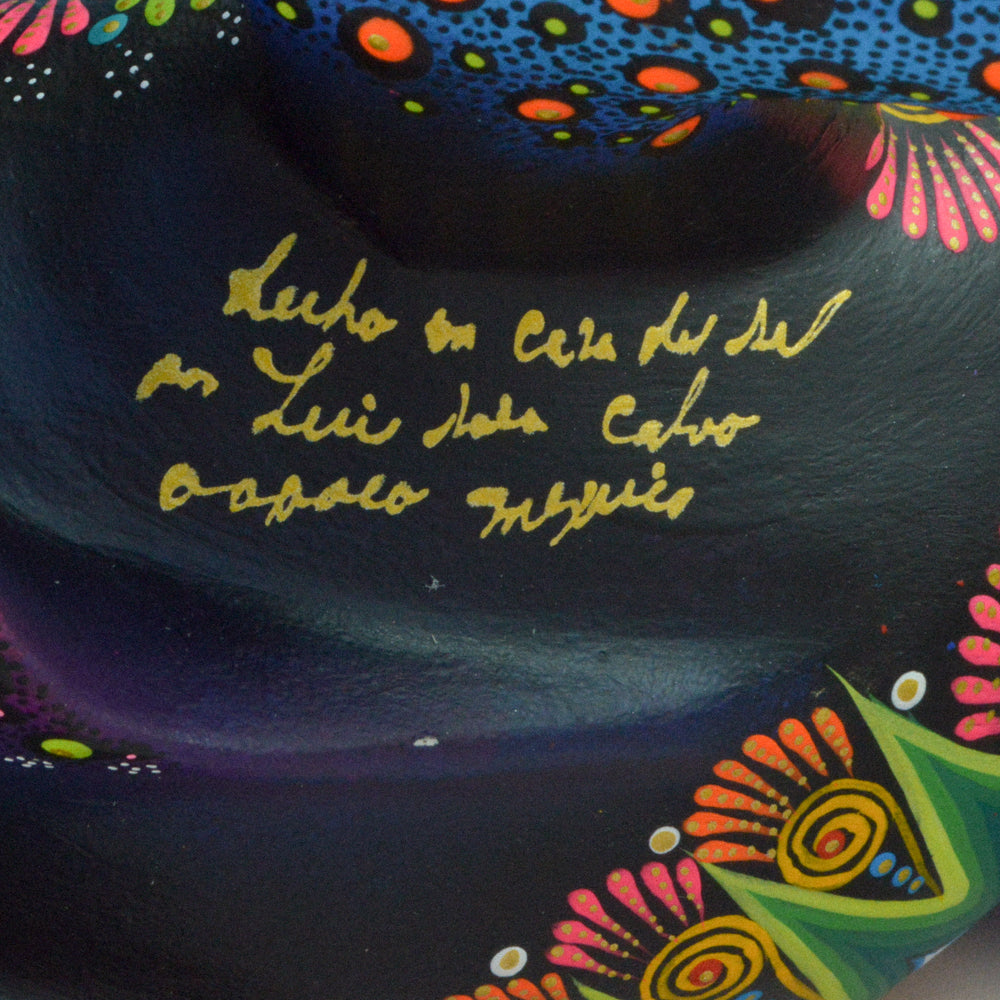 Hecho en Casa del sel
por Luis Sosa Calvo
Oaxaca Mexico